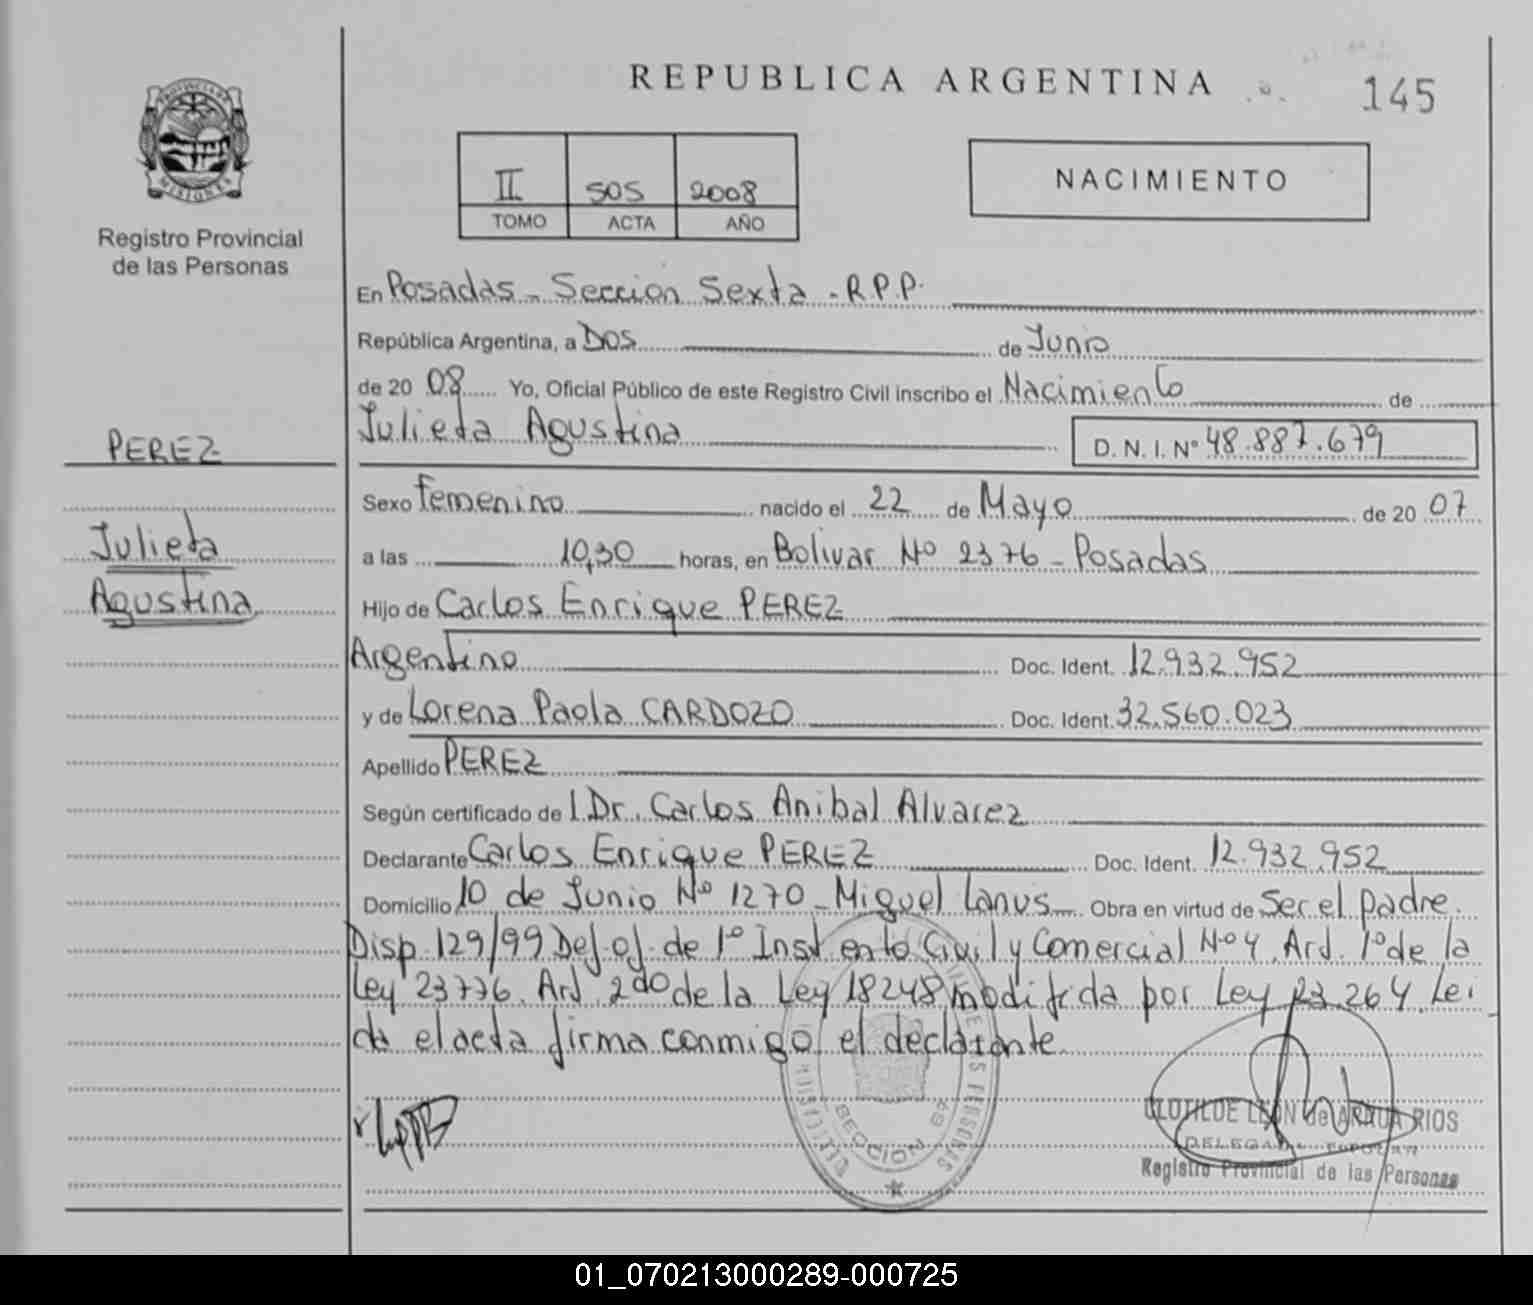 REPUBLICA ARGENTINA
145
PROVINCIA DE
MISIONES
Registro Provincial
de las Personas
II 505 2008
TOMO ACTA AÑO
NACIMIENTO
En Posadas - Sección Sexta - R.P.P.
República Argentina, a Dos de Junio
de 20 08 Yo, Oficial Público de este Registro Civil inscribo el Nacimiento de
Julieta Agustina D. N. I. Nº 48.887.679
PEREZ
Julieta
Agustina
Sexo Femenino nacido el 22 de Mayo de 20 07
a las 10,30 horas, en Bolivar Nº 2376 - Posadas
Hijo de Carlos Enrique PEREZ
Argentino Doc. Ident. 12.932.952
y de Lorena Paola CARDOZO Doc. Ident. 32.560.023
Apellido PEREZ
Según certificado de l Dr. Carlos Anibal Alvarez
Declarante Carlos Enrique PEREZ Doc. Ident. 12.932.952
Domicilio 10 de Junio Nº 1270 - Miguel Lanus Obra en virtud de Ser el padre.
Disp 129/99 Def. of. de 1º Inst en lo Civil y Comercial Nº 4. Art. 1º de la
Ley 23776. Art 2do de la Ley 18248 modif da por Ley 23.264. Lei
da el acta firma conmigo el declarante
SECCION 6ª
CLOTILDE LEON de ARRUA RIOS
DELEGADA TITULAR
Registro Provincial de las Personas
01_070213000289-000725